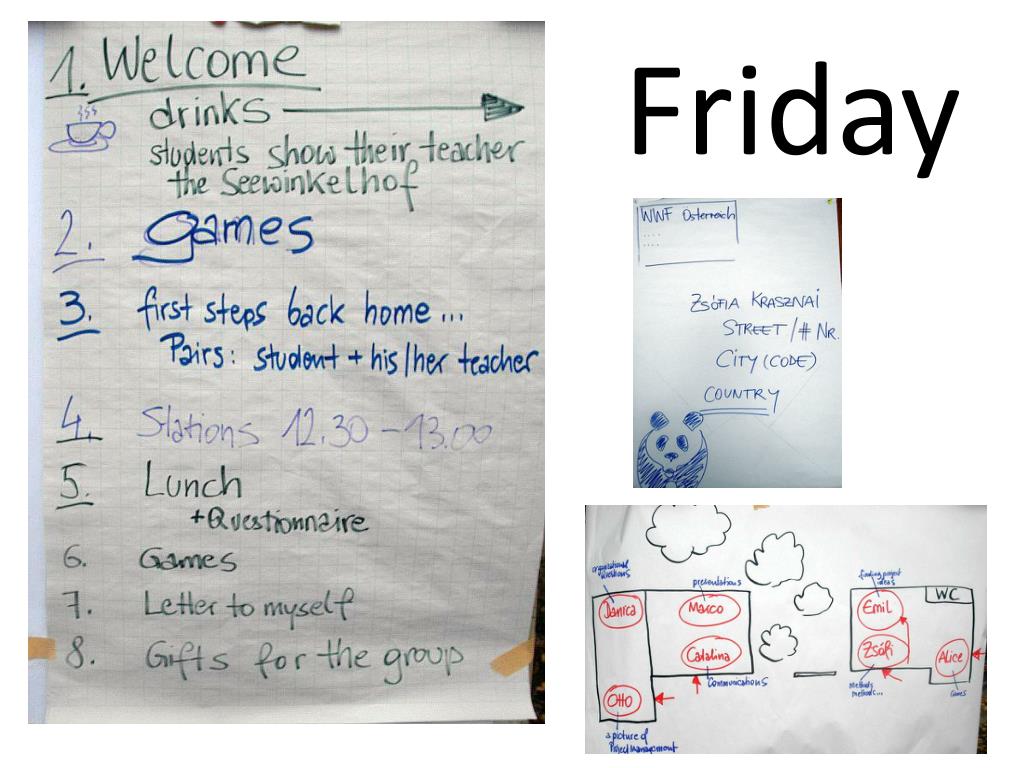 1. Welcome
drinks
students show their teacher
the Seewinkelhof
2. Games
3. first steps back home ...
Pairs: student + his/her teacher
4. Stations 12.30 – 13.00
5. Lunch
+ Questionnaire
6. Games
7. Letter to myself
8. Gifts for the group
Friday
WWF Österreich
....
....
ZSÓFIA KRASZNAI
STREET / # NR.
CITY (CODE)
COUNTRY
organizational
questions
Danica
presentations
Marco
Catalina
Communications
Otto
a picture of
Project Management
finding project
ideas
Emil
Zsófi
methods
methods...
WC
Alice
Games